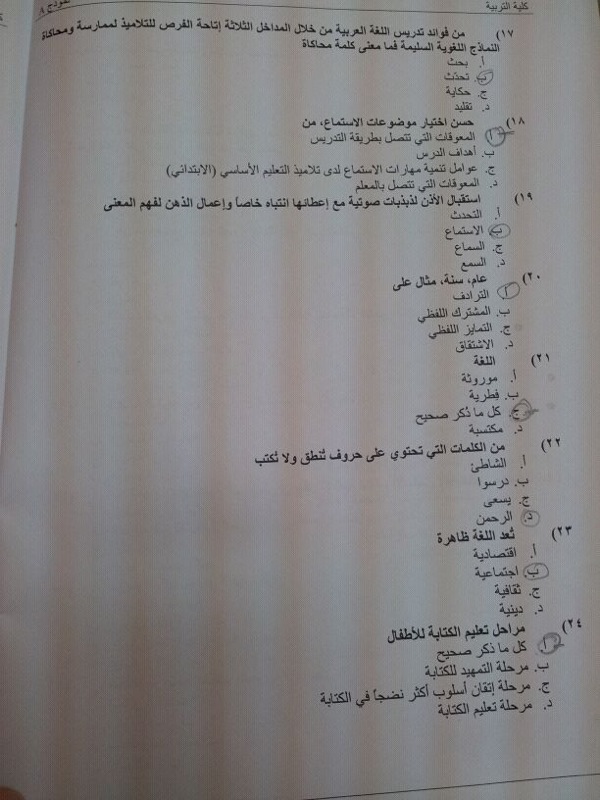 كلية التربية
نموذج A
١٧) من فوائد تدريس اللغة العربية من خلال المداخل الثلاثة إتاحة الفرص للتلاميذ لممارسة ومحاكاة
النماذج اللغوية السليمة فما معنى كلمة محاكاة
أ. بحث
ب. تحدّث
ج. حكاية
د. تقليد
١٨) حسن اختيار موضوعات الاستماع، من
أ. المعوقات التي تتصل بطريقة التدريس
ب. أهداف الدرس
ج. عوامل تنمية مهارات الاستماع لدى تلاميذ التعليم الأساسي (الابتدائي)
د. المعوقات التي تتصل بالمعلم
١٩) استقبال الأذن لذبذبات صوتية مع إعطائها انتباه خاصاً وإعمال الذهن لفهم المعنى
أ. التحدث
ب. الاستماع
ج. السماع
د. السمع
٢٠) عام، سنة، مثال على
أ. الترادف
ب. المشترك اللفظي
ج. التمايز اللفظي
د. الاشتقاق
٢١) اللغة
أ. موروثة
ب. فطرية
ج. كل ما ذكر صحيح
د. مكتسبة
٢٢) من الكلمات التي تحتوي على حروف تُنطق ولا تُكتب
أ. الشاطئ
ب. درسوا
ج. يسعى
د. الرحمن
٢٣) تُعد اللغة ظاهرة
أ. اقتصادية
ب. اجتماعية
ج. ثقافية
د. دينية
٢٤) مراحل تعليم الكتابة للأطفال
أ. كل ما ذكر صحيح
ب. مرحلة التمهيد للكتابة
ج. مرحلة إتقان أسلوب أكثر نضجاً في الكتابة
د. مرحلة تعليم الكتابة